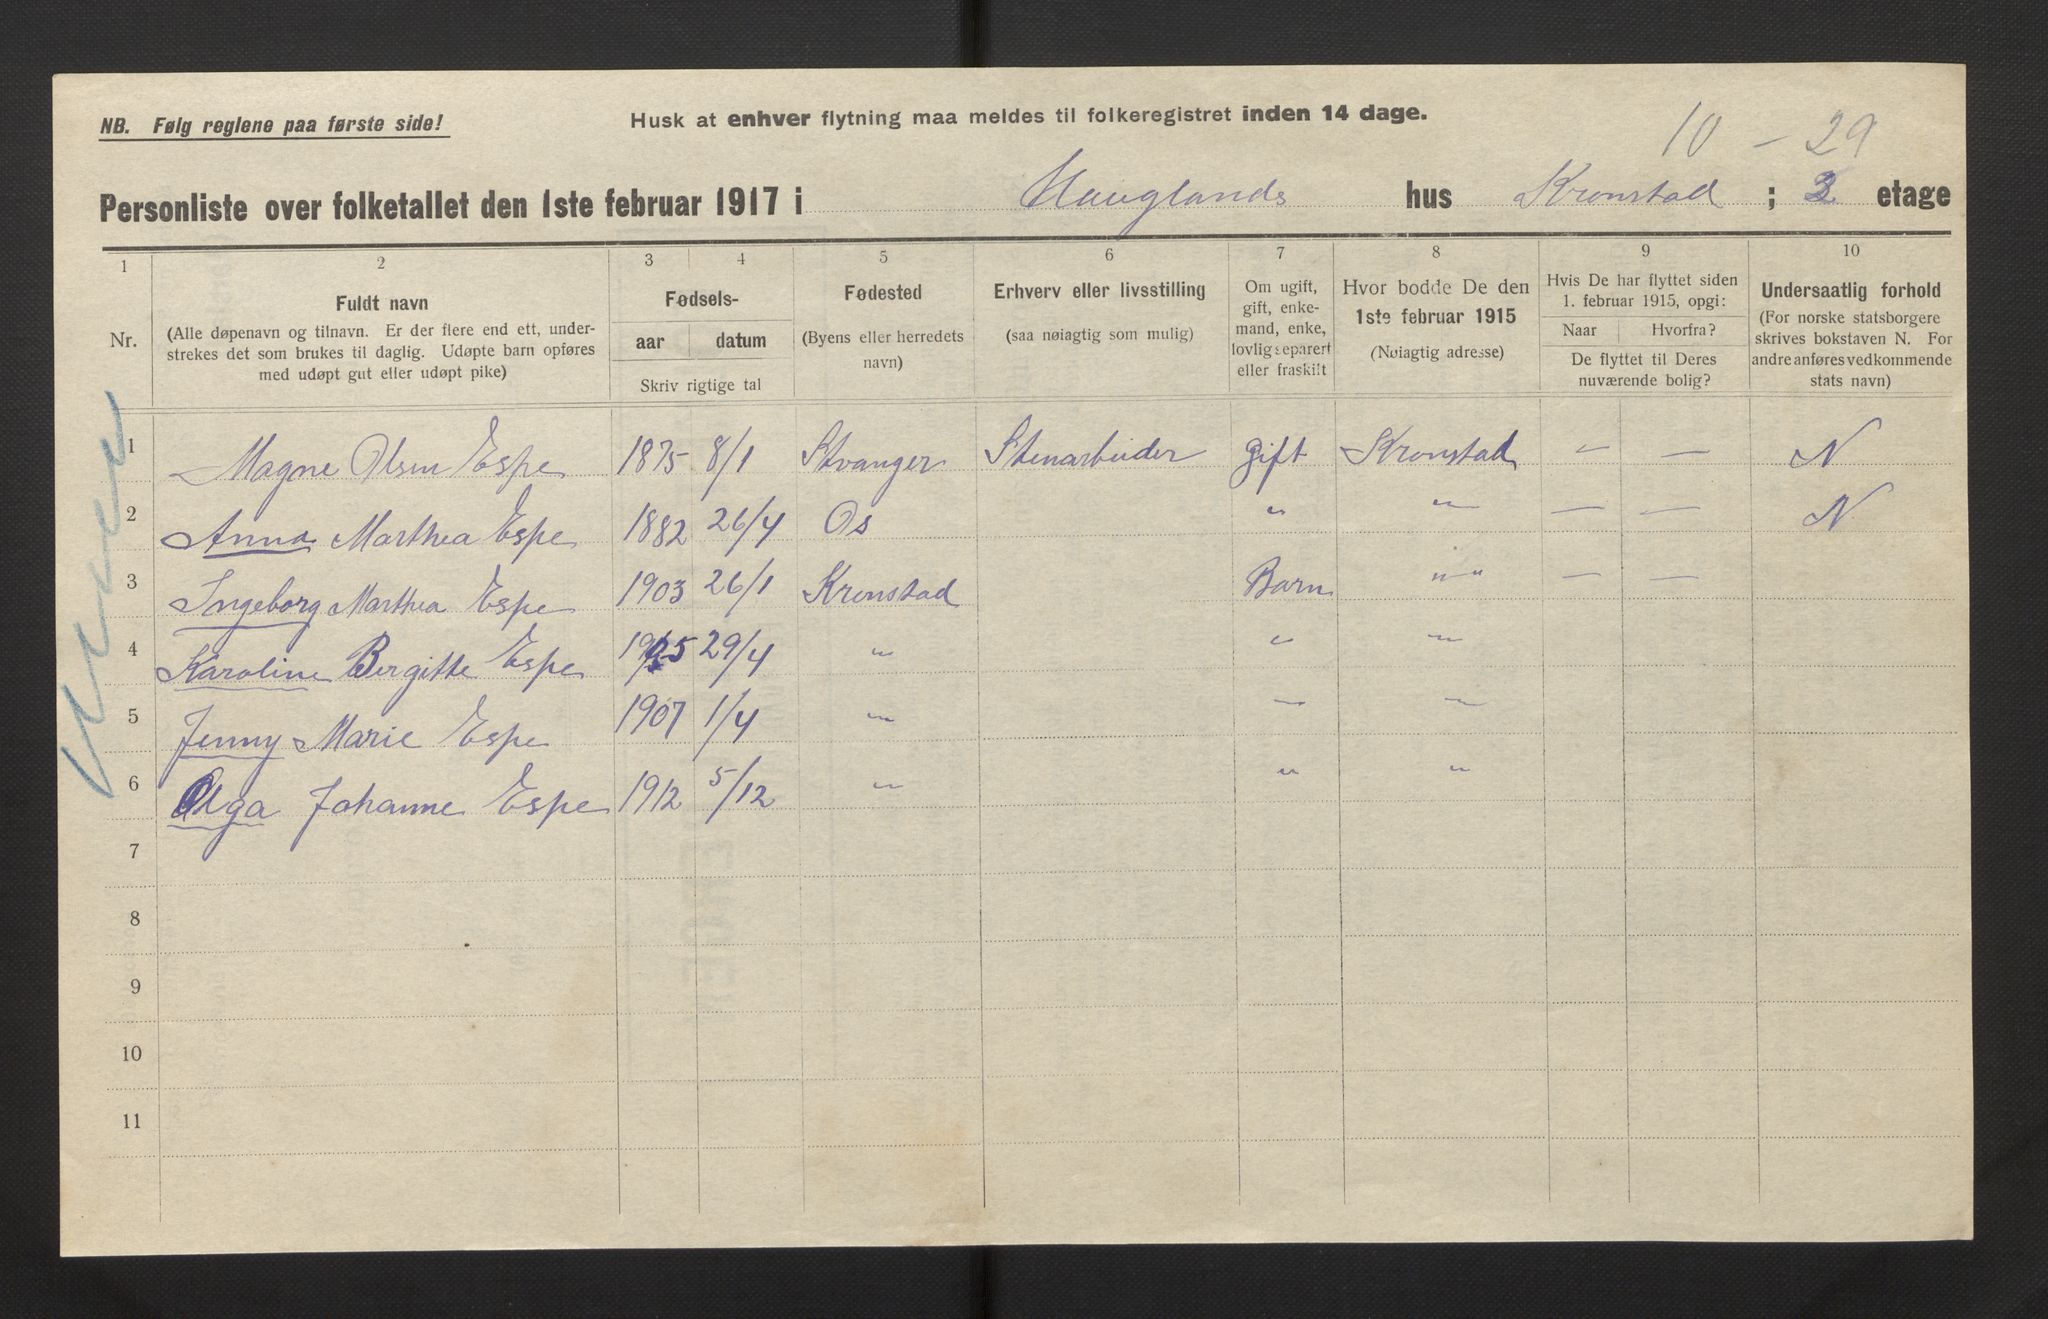 NB. Følg reglene paa første side!
Husk at enhver flytning maa meldes til folkeregistret inden 14 dage.
10 - 29
Personliste over folketallet den 1ste februar 1917 i Hauglands hus Kronstad ; 2 etage
1 2 3 4 5 6 7 8 9 10
Nr.
Fuldt navn
(Alle døpenavn og tilnavn. Er der flere end ett, under-
strekes det som brukes til daglig. Udøpte barn opføres
med udøpt gut eller udøpt pike)
Fødsels-
aar datum
Skriv rigtige tal
Fødested
(Byens eller herredets
navn)
Erhverv eller livsstilling
(saa nøiagtig som mulig)
Om ugift,
gift, enke-
mand, enke,
lovlig separert
eller fraskilt
Hvor bodde De den
1ste februar 1915
(Nøiagtig adresse)
Hvis De har flyttet siden
1. februar 1915, opgi:
Naar Hvorfra?
De flyttet til Deres
nuværende bolig?
Undersaatlig forhold
(For norske statsborgere
skrives bokstaven N. For
andre anføres vedkommende
stats navn)
1 Magne Olsen Espe 1875 8/1 Stvanger Stenarbeider gift Kronstad - — N
2 Anna Marthea Espe 1882 26/4 Os " " — — N
3 Ingeborg Marthea Espe 1903 26/1 Kronstad Barn " " — —
4 Karoline Bergitte Espe 1905 29/4 " " "
5 Jenny Marie Espe 1907 1/4 " " "
6 Olga Johanne Espe 1912 5/12 " " "
7
8
9
10
11